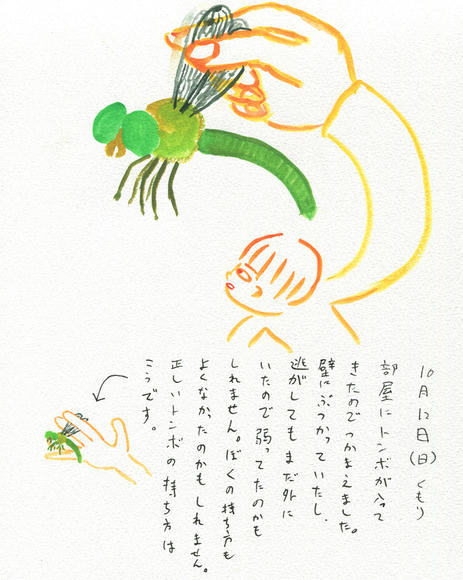 10月12日(日)くもり
部屋にトンボが入って
きたのでつかまえました。
壁にぶつかっていたし、
逃がしてもまだ外に
いたので弱ってたのかも
しれません。ぼくの持ち方も
よくなかったのかもしれません。
正しいトンボの持ち方は
こうです。